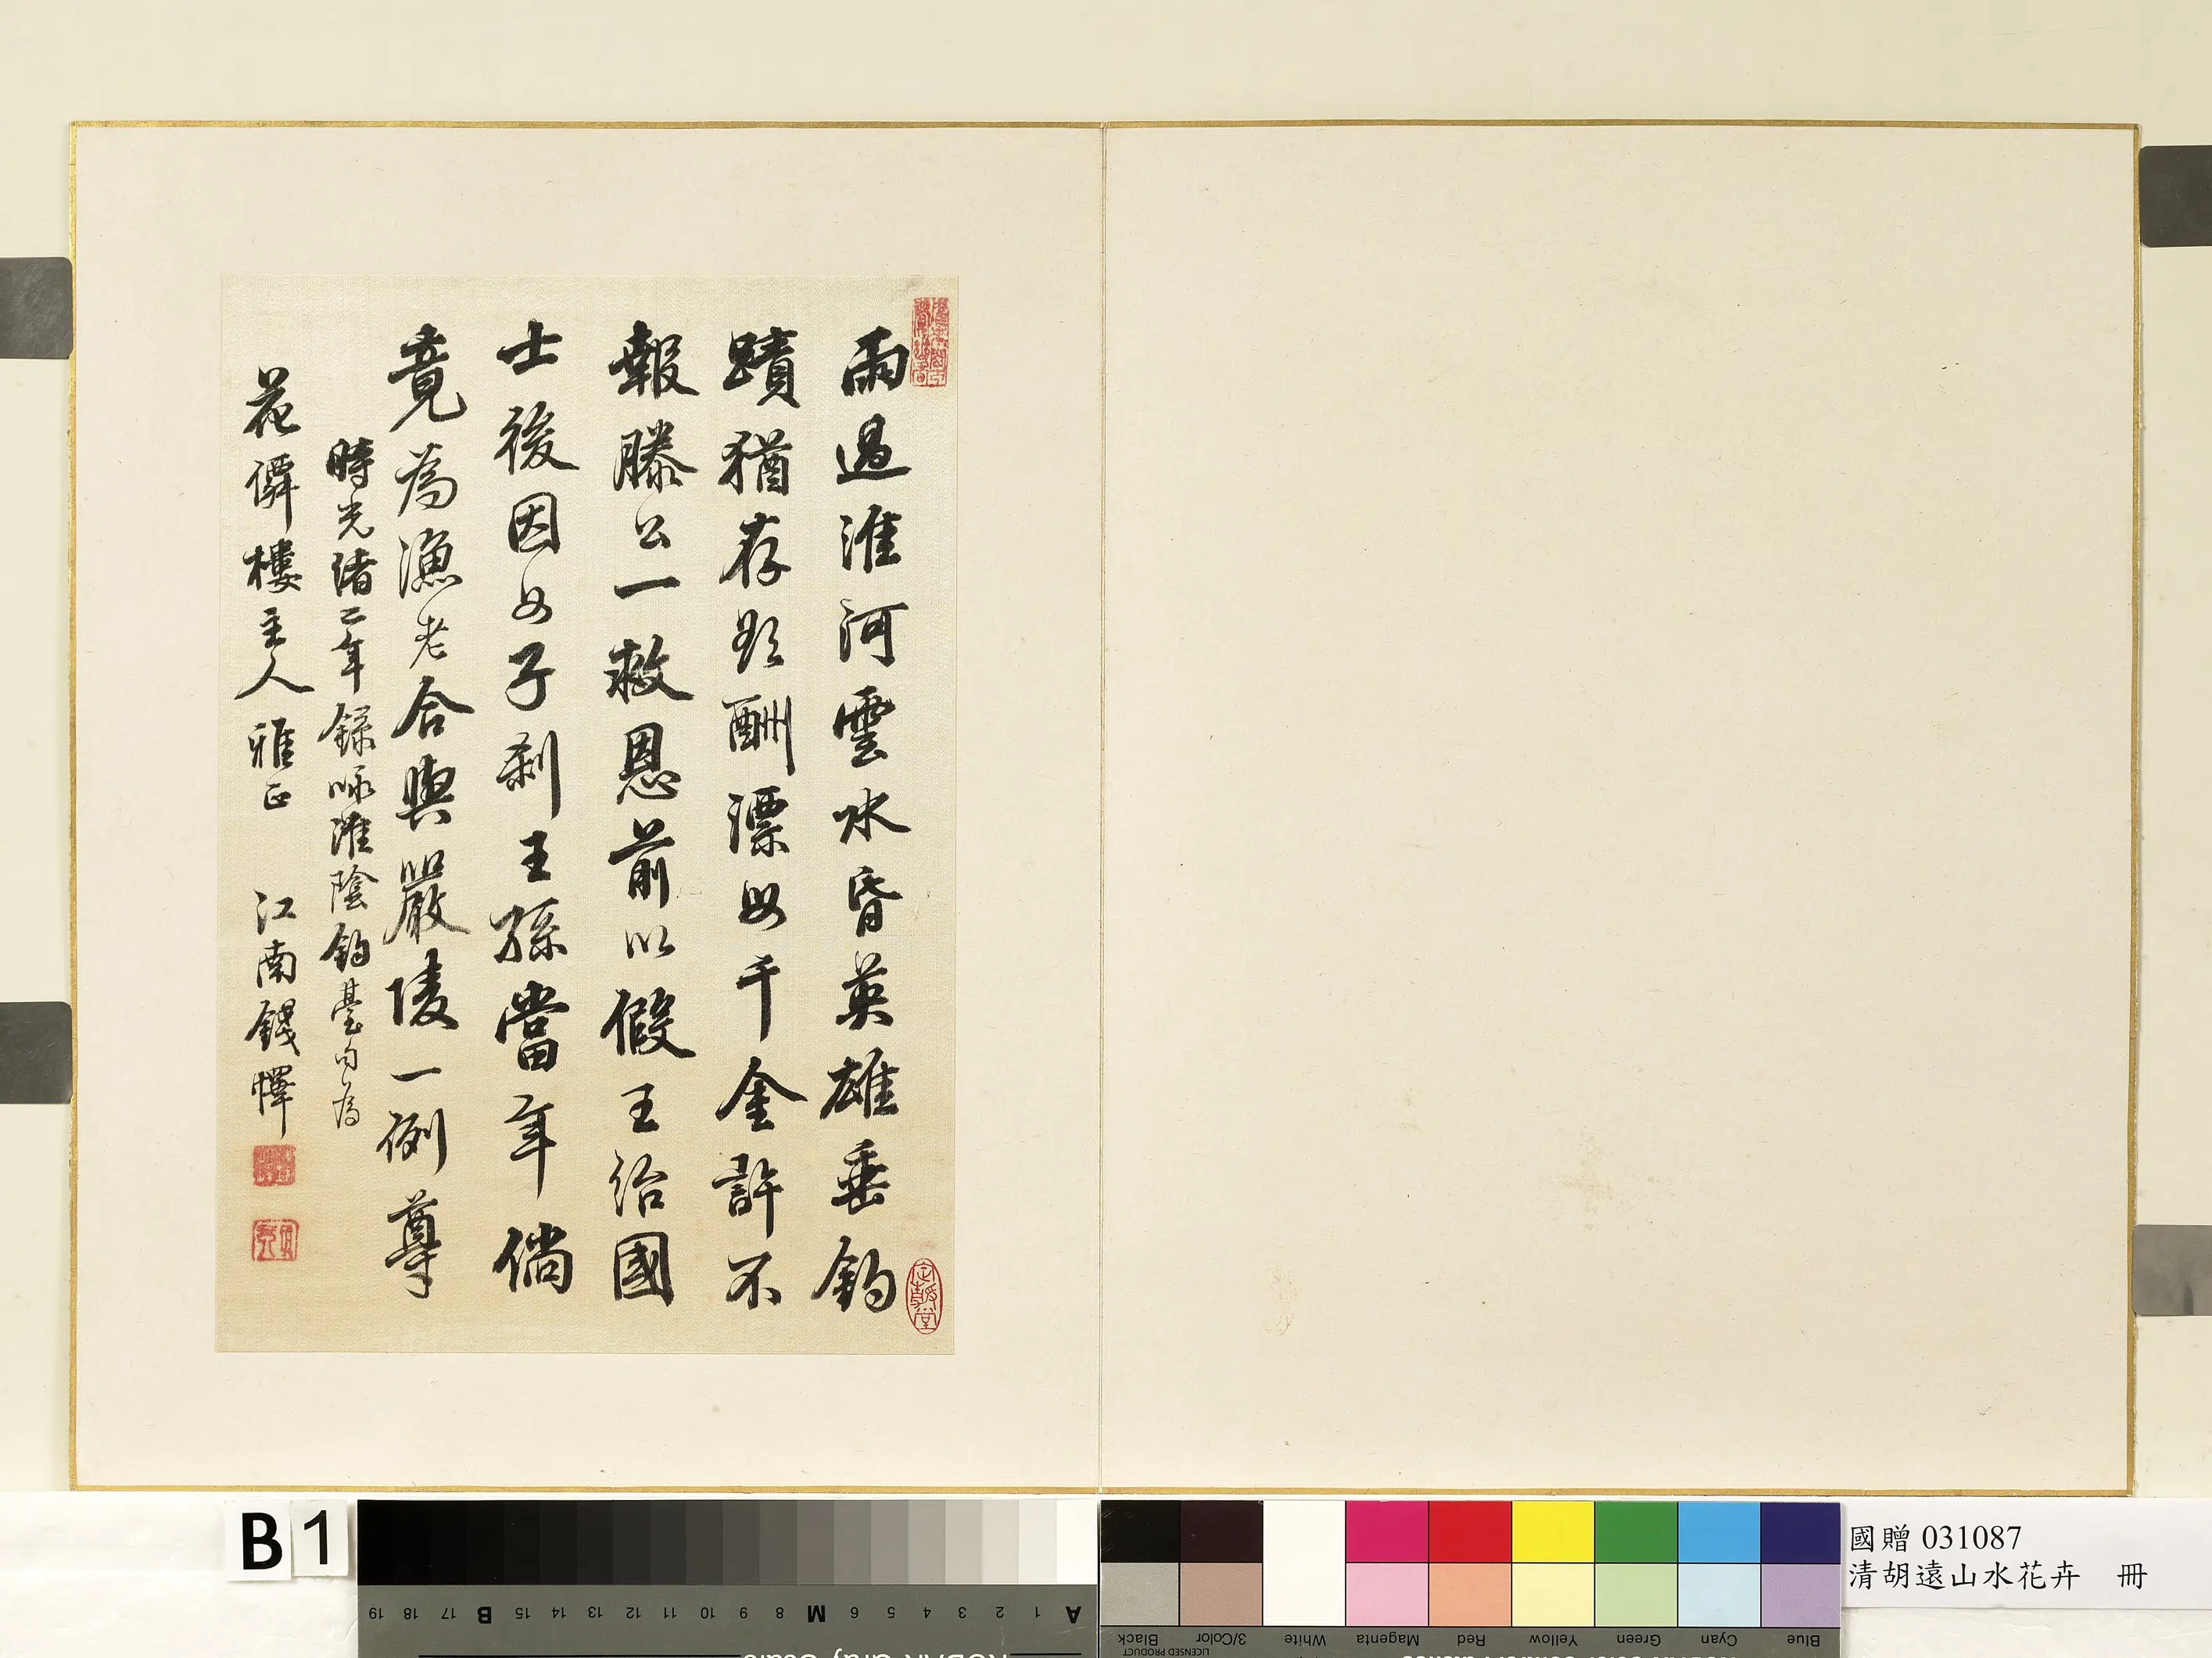 雨過淮河雲水昏英雄垂釣
蹟猶存欲酬漂母千金許不
報滕公一救恩前以假王紿國
士後因女子剎王孫當年倘
竟為漁老合與嚴陵一例尊
時光緒二年錄咏淮陰釣臺句為
花僲樓主人雅正 江南錢懌
定靜堂
B1
國贈 031087
清胡遠山水花卉 冊
A 1 2 3 4 5 6 M 8 9 10 11 12 13 14 15 B 17 18 19
Blue Cyan Green Yellow Red Magenta White 3/Color Black
LICENSED PRODUCT